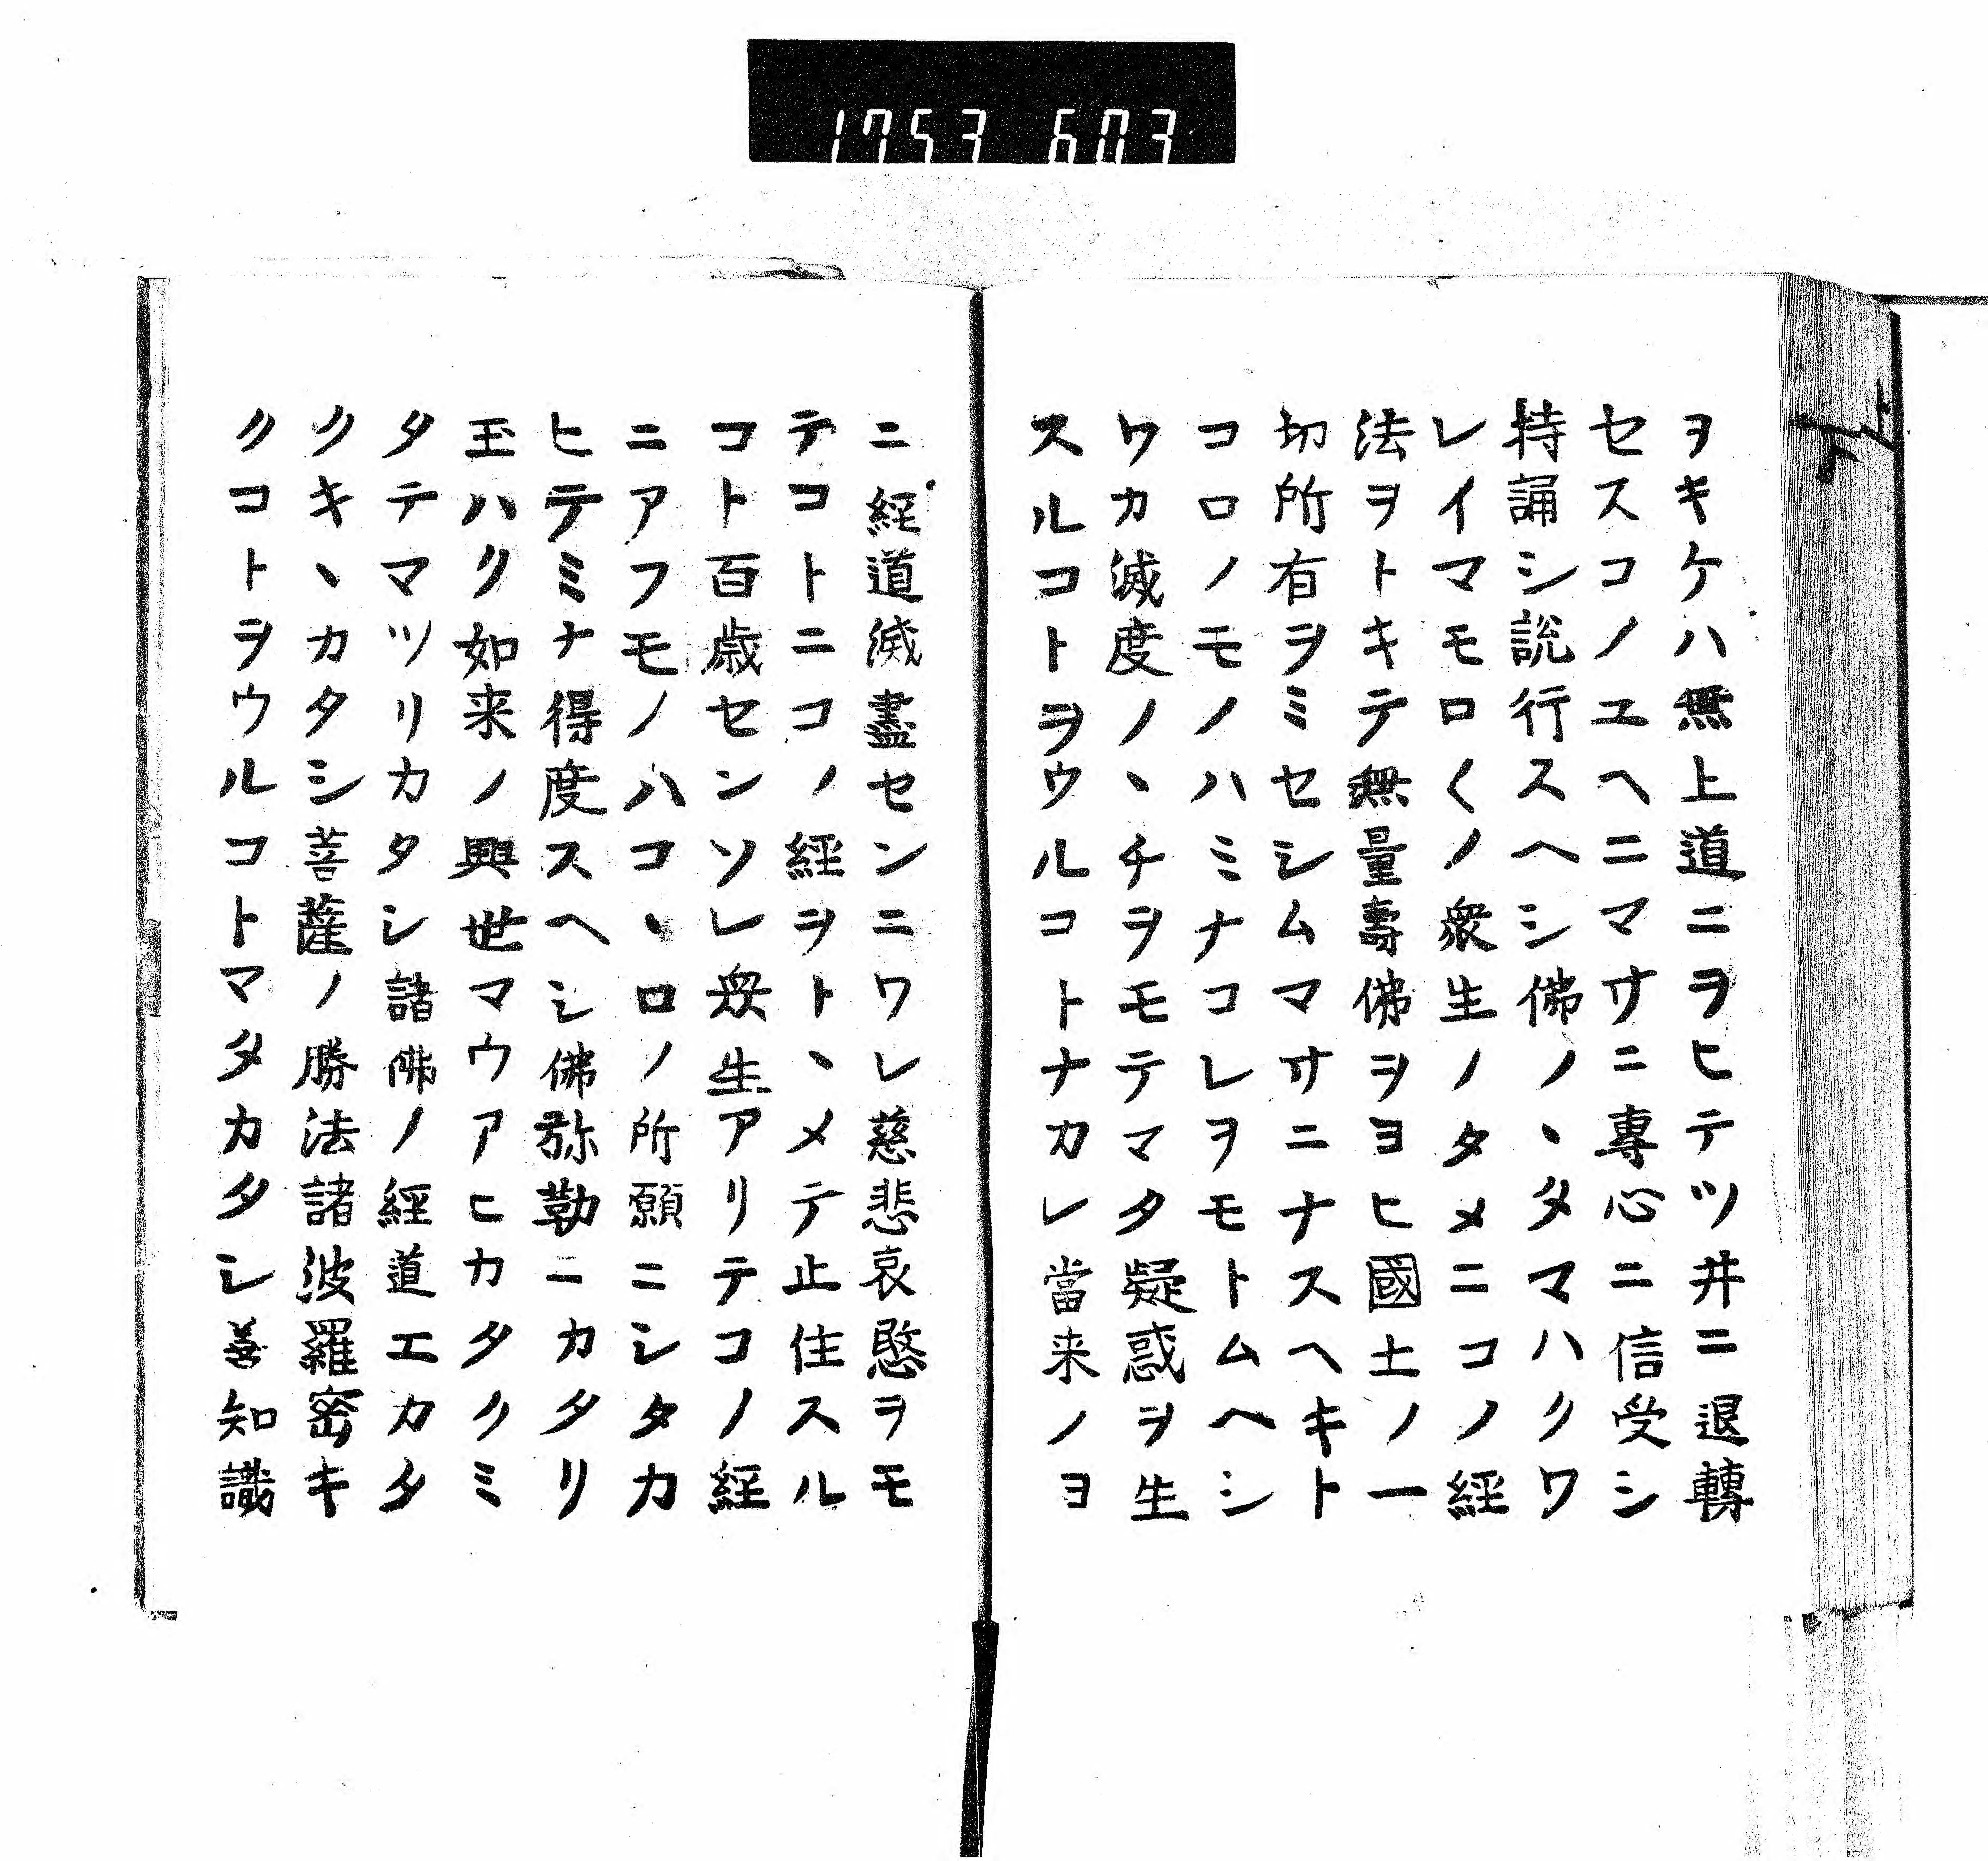 1753 603
ヲキケハ無上道ニヲヒテツ井ニ退轉
セスコノユヘニマサニ專心ニ信受シ
持誦シ説行スヘシ佛ノヽタマハクワ
レイマモロ〱ノ衆生ノタメニコノ経
法ヲトキテ無量壽佛ヲヨヒ國土ノ一
切所有ヲミセシムマサニナスヘキト
コロノモノハミナコレヲモトムヘシ
ワカ滅度ノヽチヲモテマタ疑惑ヲ生
スルコトヲウルコトナカレ當来ノヨ
ニ経道滅盡センニワレ慈悲哀愍ヲモ
テコトニコノ経ヲトヽメテ止住スル
コト百歳センソレ衆生アリテコノ経
ニアフモノハコヽロノ所願ニシタカ
ヒテミナ得度スヘシ佛弥勒ニカタリ
玉ハク如来ノ興世マウアヒカタクミ
タテマツリカタシ諸佛ノ経道エカタ
クキヽカタシ菩薩ノ勝法諸波羅密キ
クコトヲウルコトマタカタシ善知識